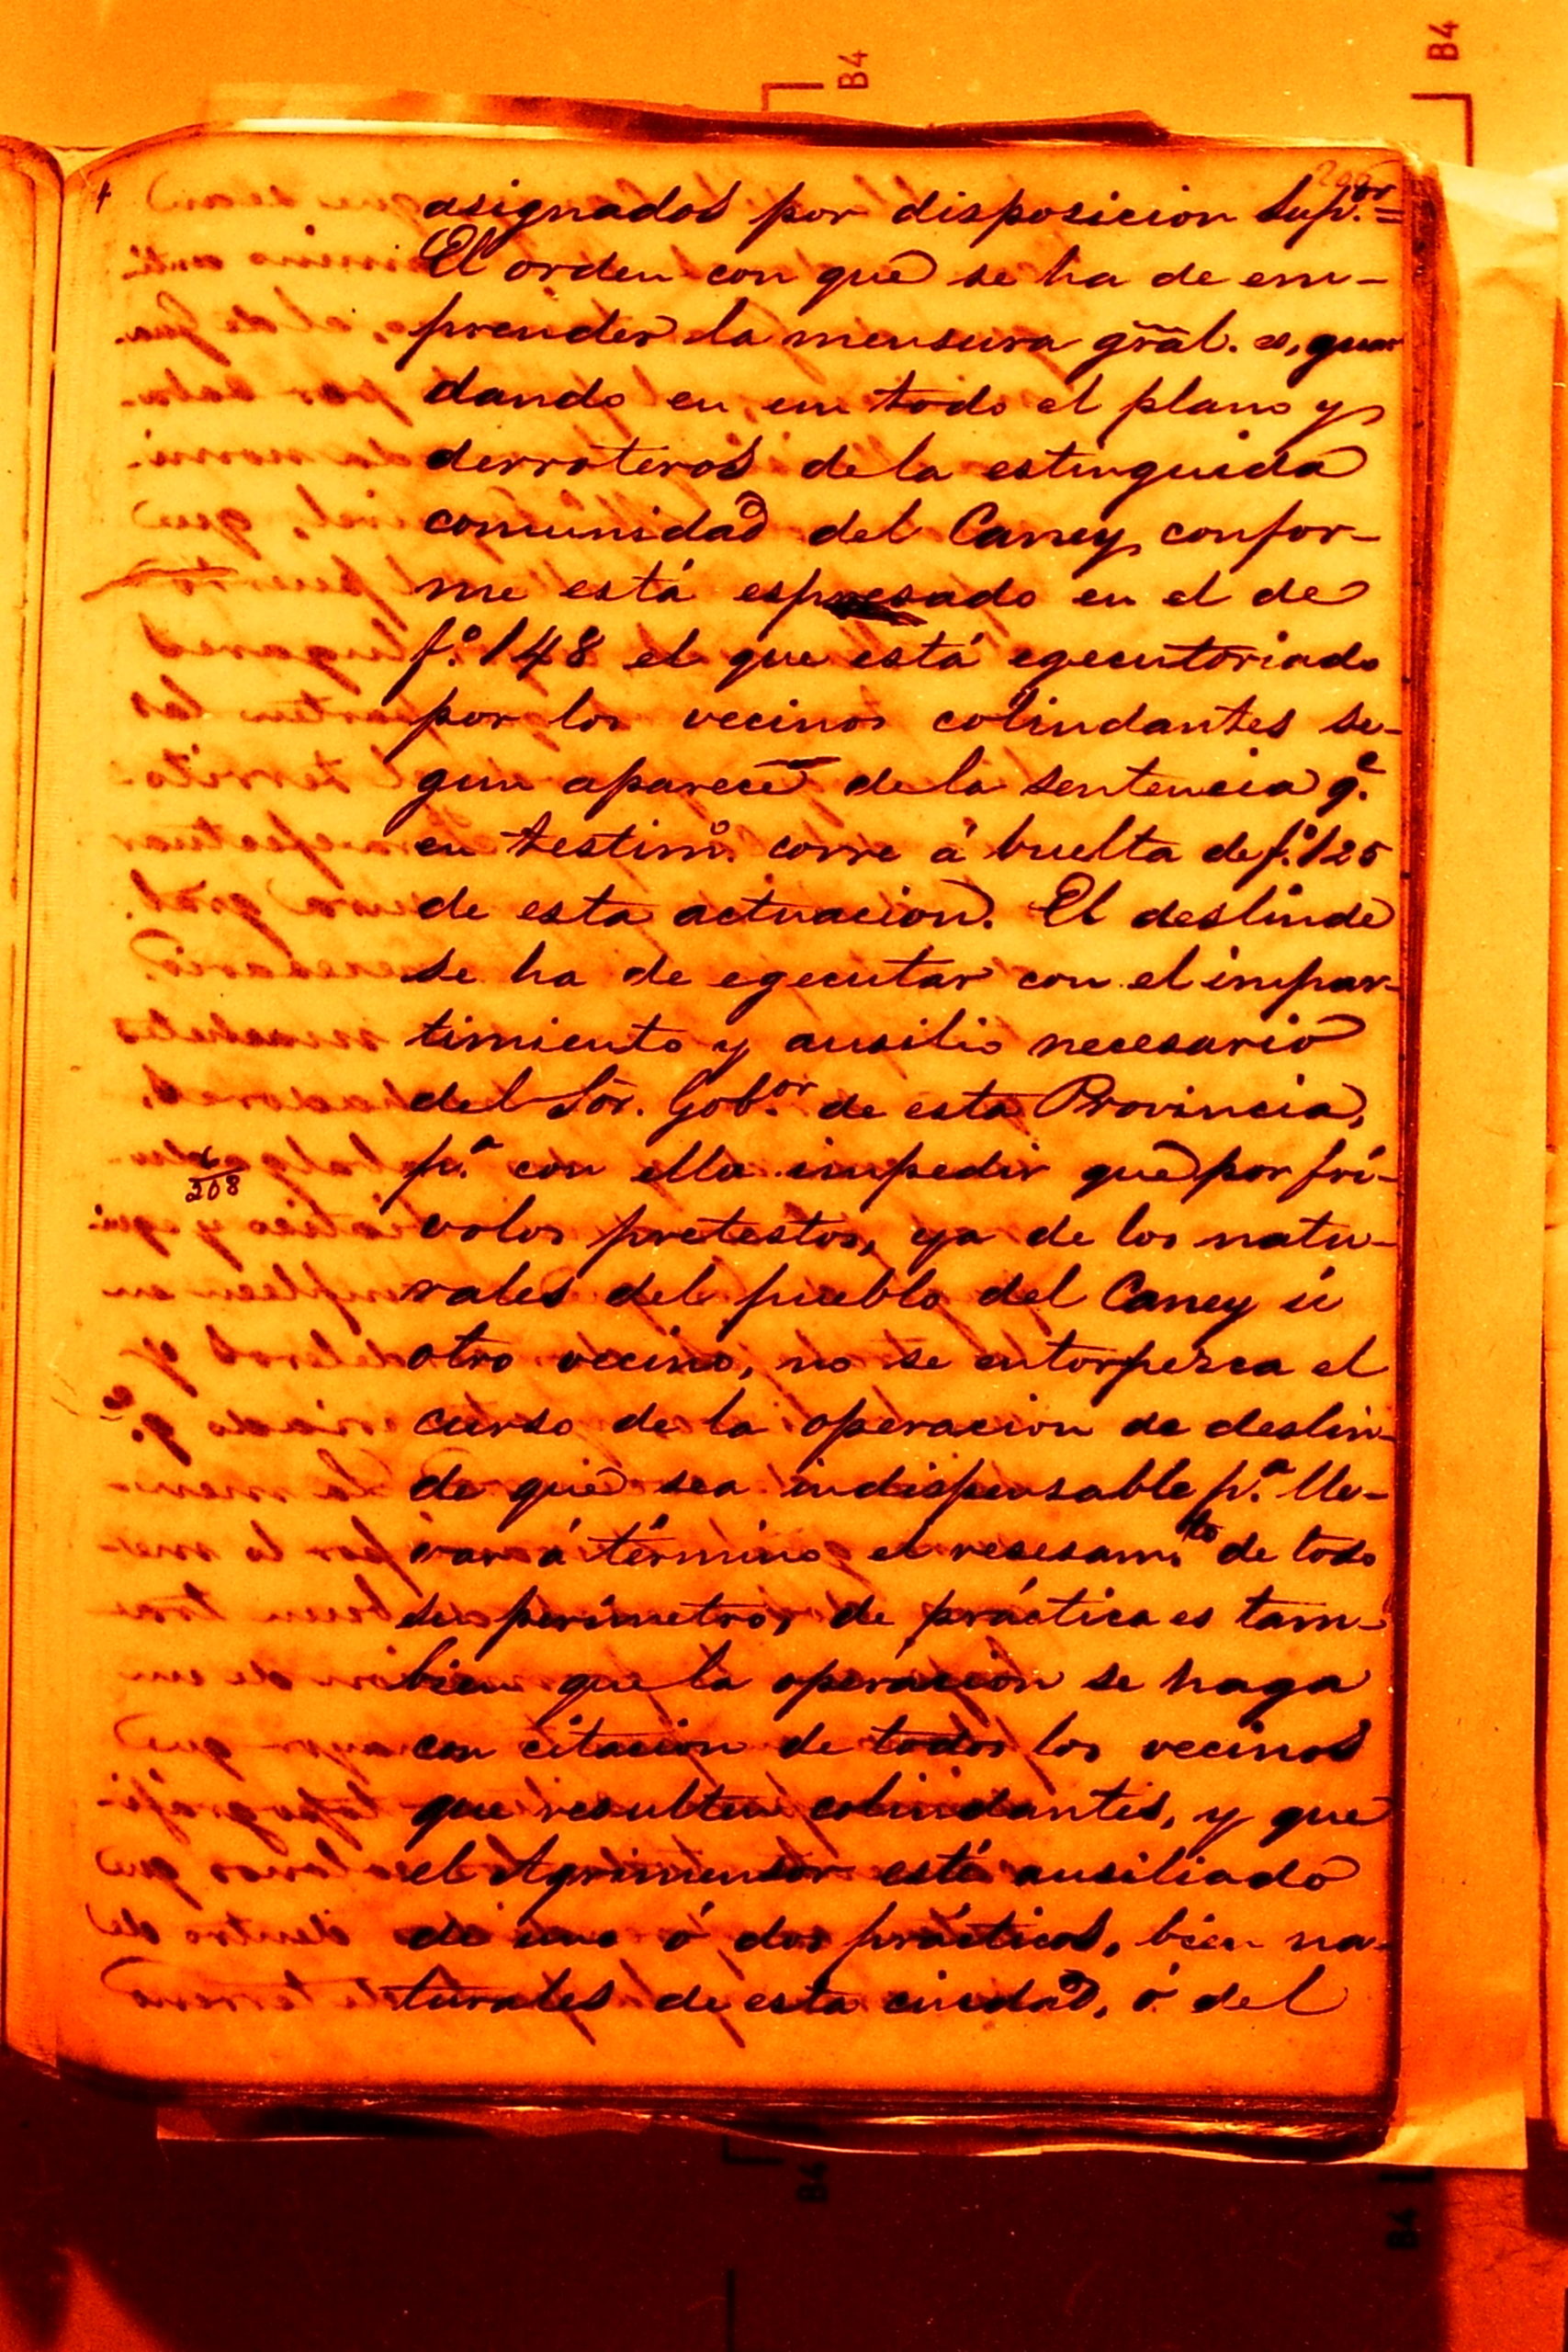 B4
B4
4
asignados por disposicion Sup.or=
El orden con que se ha de em-
prender la mensura grãl. es, guar
dando en un todo el plano y
derroteros de la estinguida
comunidad del Caney, confor-
me está espresado en el de
f.o 148 el que está egecutoriado
por los vecinos colindantes se-
gun aparece de la sentencia q.e
en testim.o corre á buelta de f.o 125
de esta actuacion. El deslinde
se ha de egecutar con el impar-
timiento y ausilio necesario
del Sõr. Gob.or de esta Provincia,
p.a con ella impedir que por frí-
x
208
volos pretestos, ya de los natu-
rales del pueblo del Caney ú
otro vecino, no se entorpezca el
curso de la operacion de deslin-
de que sea indispensable p.a lle-
var á término el resesam.to de todo
su perímetro, de práctica es tam-
bien que la operación se haga
con citacion de todos los vecinos
que resulten colindantes, y que
el Agrimensor esté ausiliado
de uno ó dos prácticos, bien na-
turales de esta ciudad, ó del
B4
B4